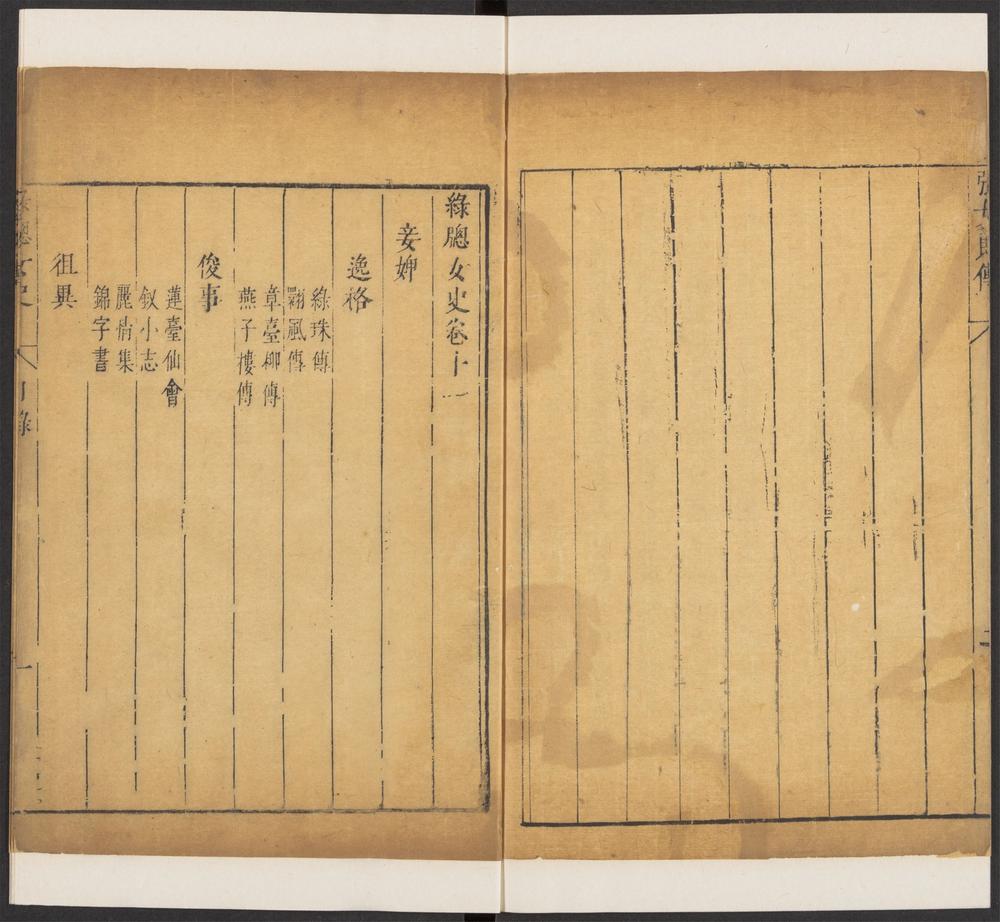 張女郎傳
二
綠牕女史卷十一
妾婢
逸格
綠珠傳
翾風傳
章臺柳傳
燕子樓傳
俊事
蓮臺仙會
釵小志
麗情集
錦字書
徂異
綠牕女史
目錄
一